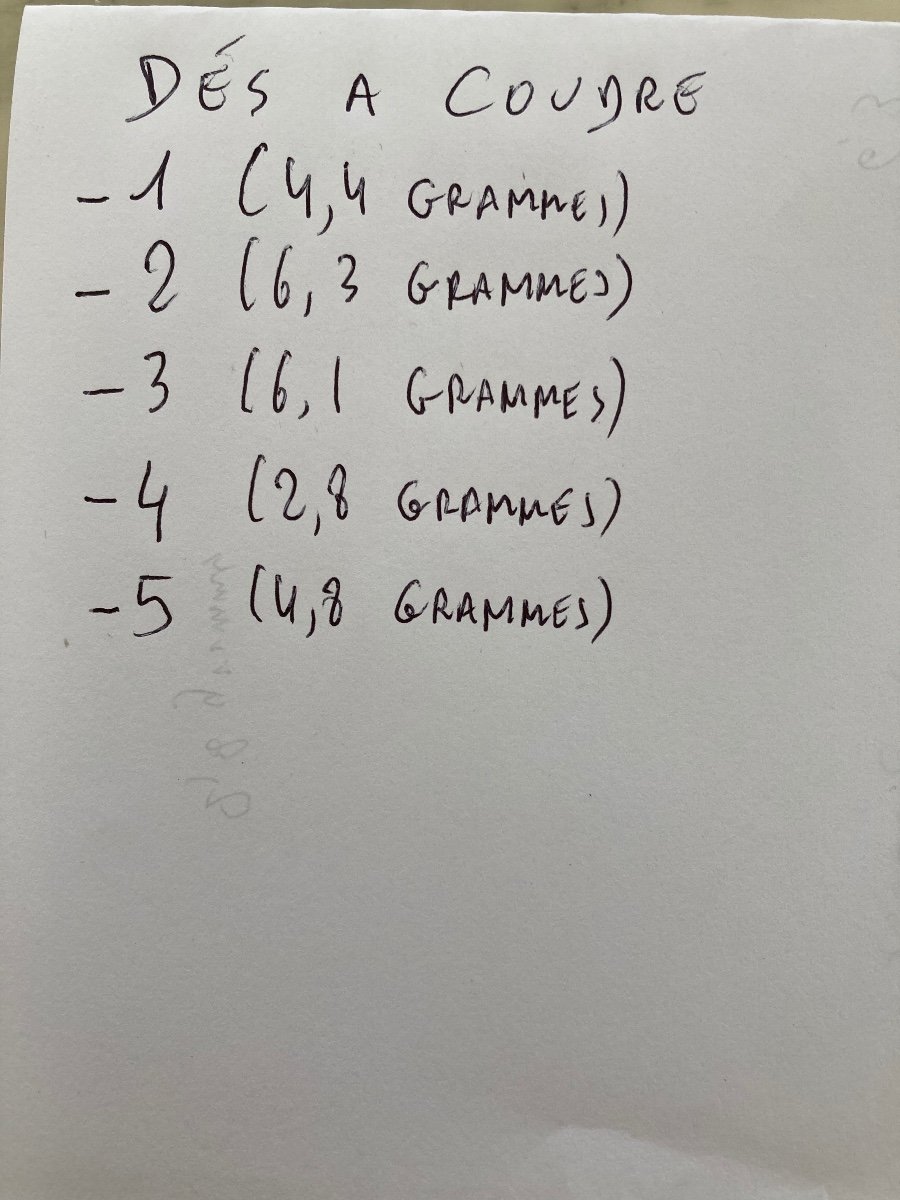 DÉS A COUDRE
- 1 (4,4 GRAMMES)
- 2 (6,3 GRAMMES)
- 3 (6,1 GRAMMES)
- 4 (2,8 GRAMMES)
- 5 (4,8 GRAMMES)